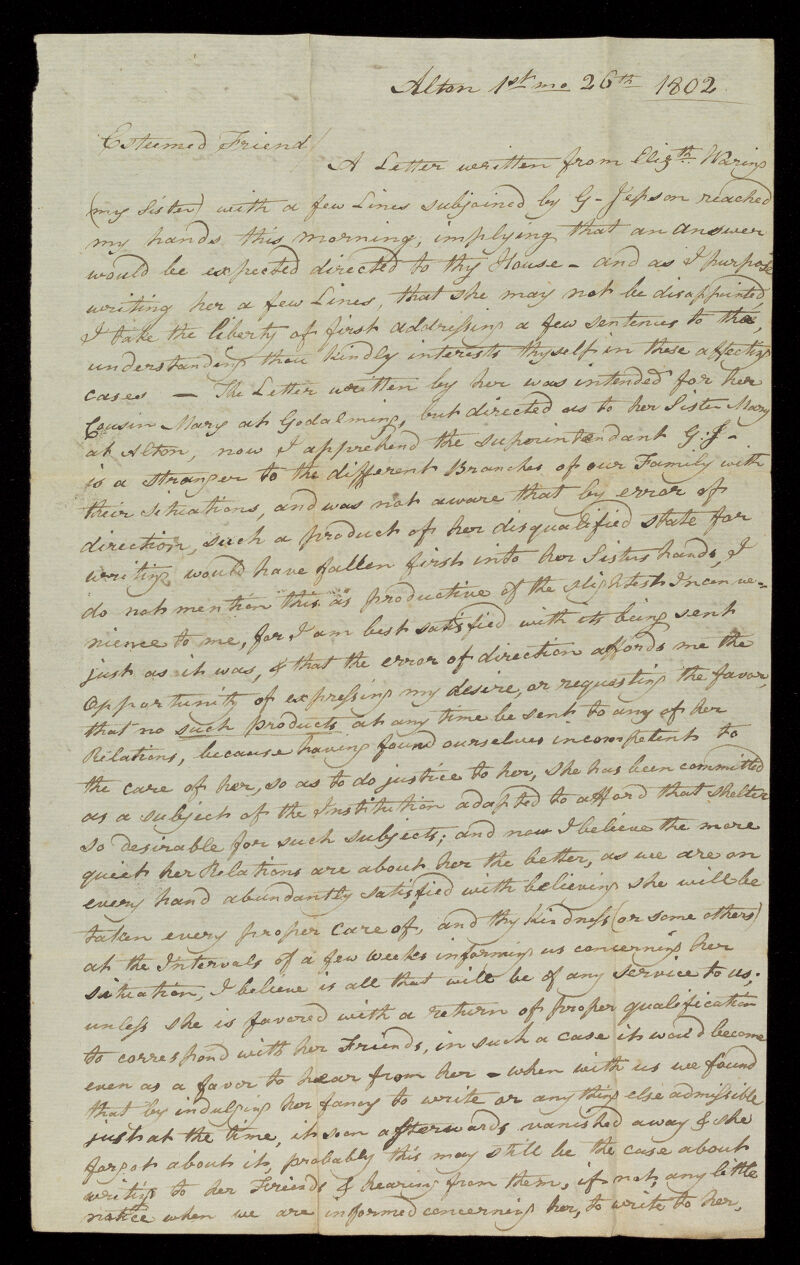 Alton 1st mo 26th 1802
Esteemed Friend/
A Letter written from Elizth. Waring
(my Sister) with a few Lines subjoined by G-Jepson reached
my hands this morning, implying that an answer
would be expected directed to thy House - and as I purpose
writing her a few Lines, that she may not be disappointed,
I take the liberty of first addressing a few sentences to thee,
understanding thou kindly interests thyself in these affecting
cases — The Letter written by her was intended for her
Cousin Mary at Godalming, but directed as to her Sister Mary
at Alton, now I apprehend the superintendant G.J-
is a stranger to the different Branches of our Family with
their situations, and was not aware that by error of
direction, such a product of her disqualified state for
writing would have fallen first into her Sisters hands, I
do not mention this as productive of the slightest Inconve-
nience to me, for I am best satisfied with its being sent
just as it was, & that the error of direction affords me the
opportunity of expressing my desire, or requesting the favor,
that no such products at any time be sent to any of her
Relations, because having found ourselves incompetent to
the care of her, so as to do justice to her, she has been committed
as a subject of the Institution adapted to afford that shelter
so desirable for such subjects; and now I believe the more
quiet her Relations are about her the better, as we are on
every hand abundantly satisfied with believing she will be
taken every proper care of, and thy kindness (or some others)
at the Intervals of a few weeks informing us concerning her
situation, I believe is all that will be of any service to us;
unless she is favored with a return of proper qualification
to correspond with her Friends, in such a case it would become
even as a favor to hear from her - when with us we found
that by indulging her fancy to write or any thing else admissible
just at the time, it soon afterwards vanished away & she
forgot about it, probably this may still be the case about
writing to her Friends & hearing from them, if not, any little
notice when we are informed concerning her, to write to her,